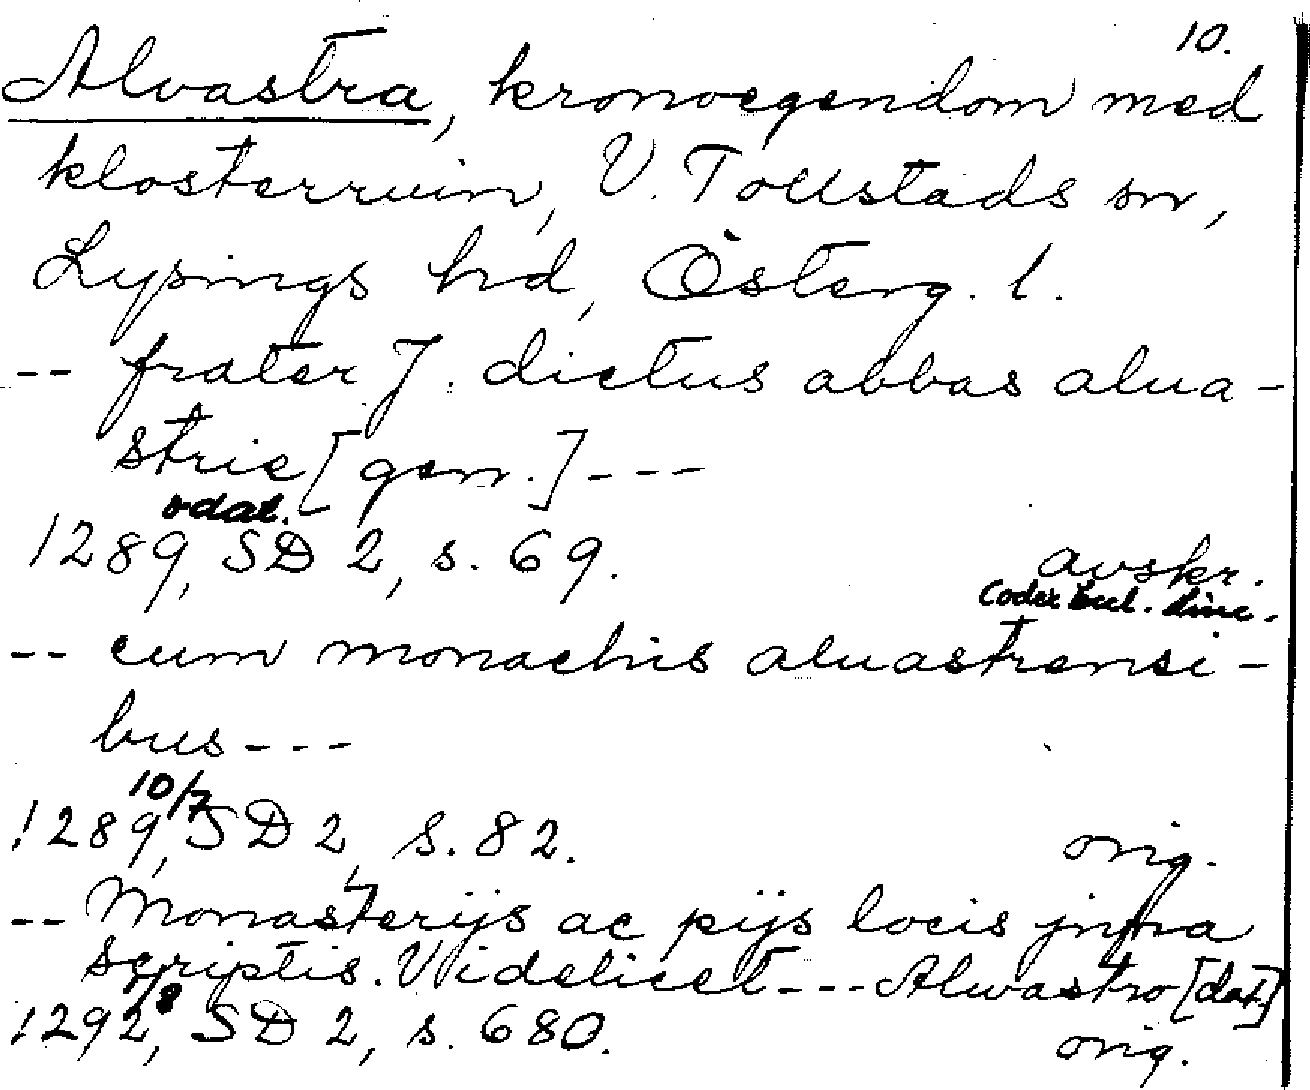 10.
Alvastra, kronoegendom med
klosterruin, V. Tollstads sn,
Lysings hd, Österg. l.
-- frater J. dictus abbas alua-
strie [gen.] ---
odat.
1289, SD 2, s. 69. avskr.
Codex bul. linc.
-- cum monachis aluastrensi-
bus ---
10/7
1289, SD 2, s. 82. orig.
-- Monasterijs ac pijs locis jnfra
scriptis. Videlicet --- Alwastro [dat]
1292, SD 2, s. 680. orig.